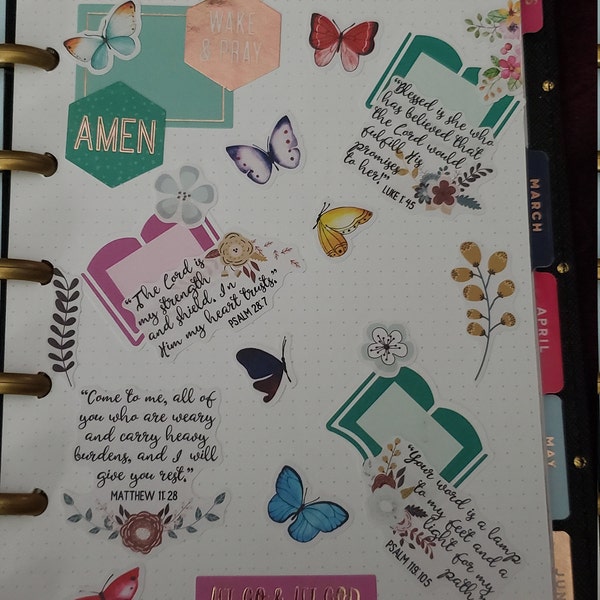 WAKE
& PRAY
AMEN
"Blessed is she who
has believed that
the Lord would
fulfill His
promises
to her!"
LUKE 1:45
MARCH
"The Lord is
my strength
and shield. In
Him my heart trusts."
PSALM 28:7
APRIL
"Come to me, all of
you who are weary
and carry heavy
burdens, and I will
give you rest."
MATTHEW 11:28
MAY
"Your word is a lamp
to my feet and a
light for my
path."
PSALM 119:105
JUNE
LET GO & LET GOD